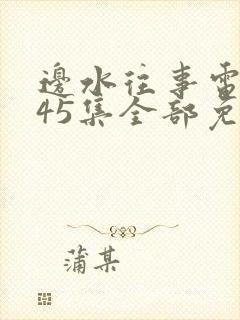 邊水往事電
45集全部免
蒲某